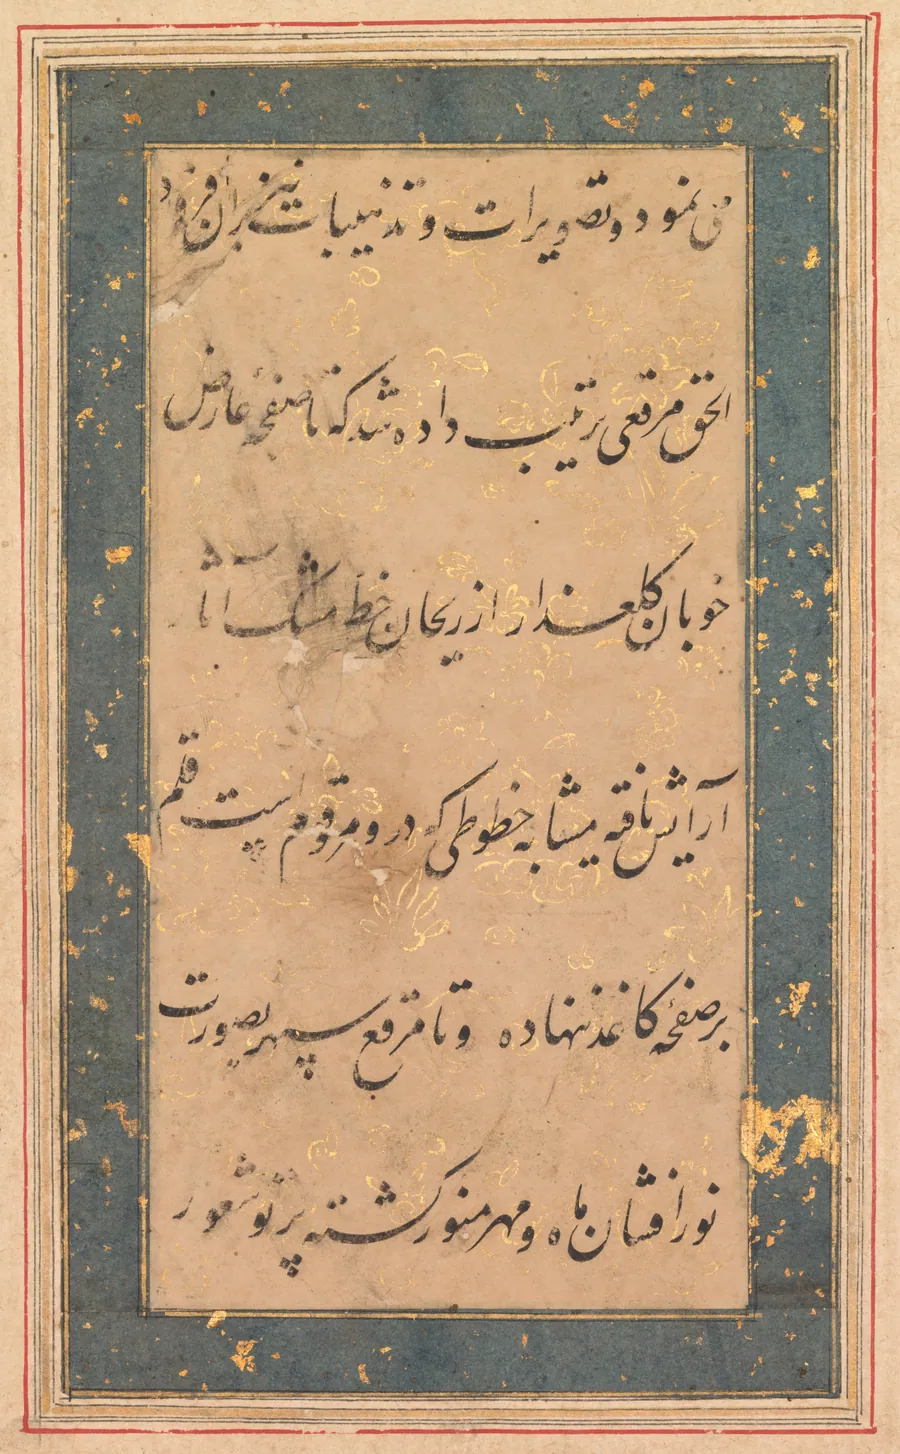 می نمود و تصویرات و تذهیبات نیز بران افزود
الحق مرقعی ترتیب داده شد که تا صفحهٔ عارض
خوبان گلعذار از ریحان خط مشک آسا
آرایش یافته مشابه خطوطی که درو مرقوم است قلم
بر صفحهٔ کاغذ نهاده و تا مرقع سپهر بصورت
نورافشان ماه و مهر منور گشته پرتو شعور